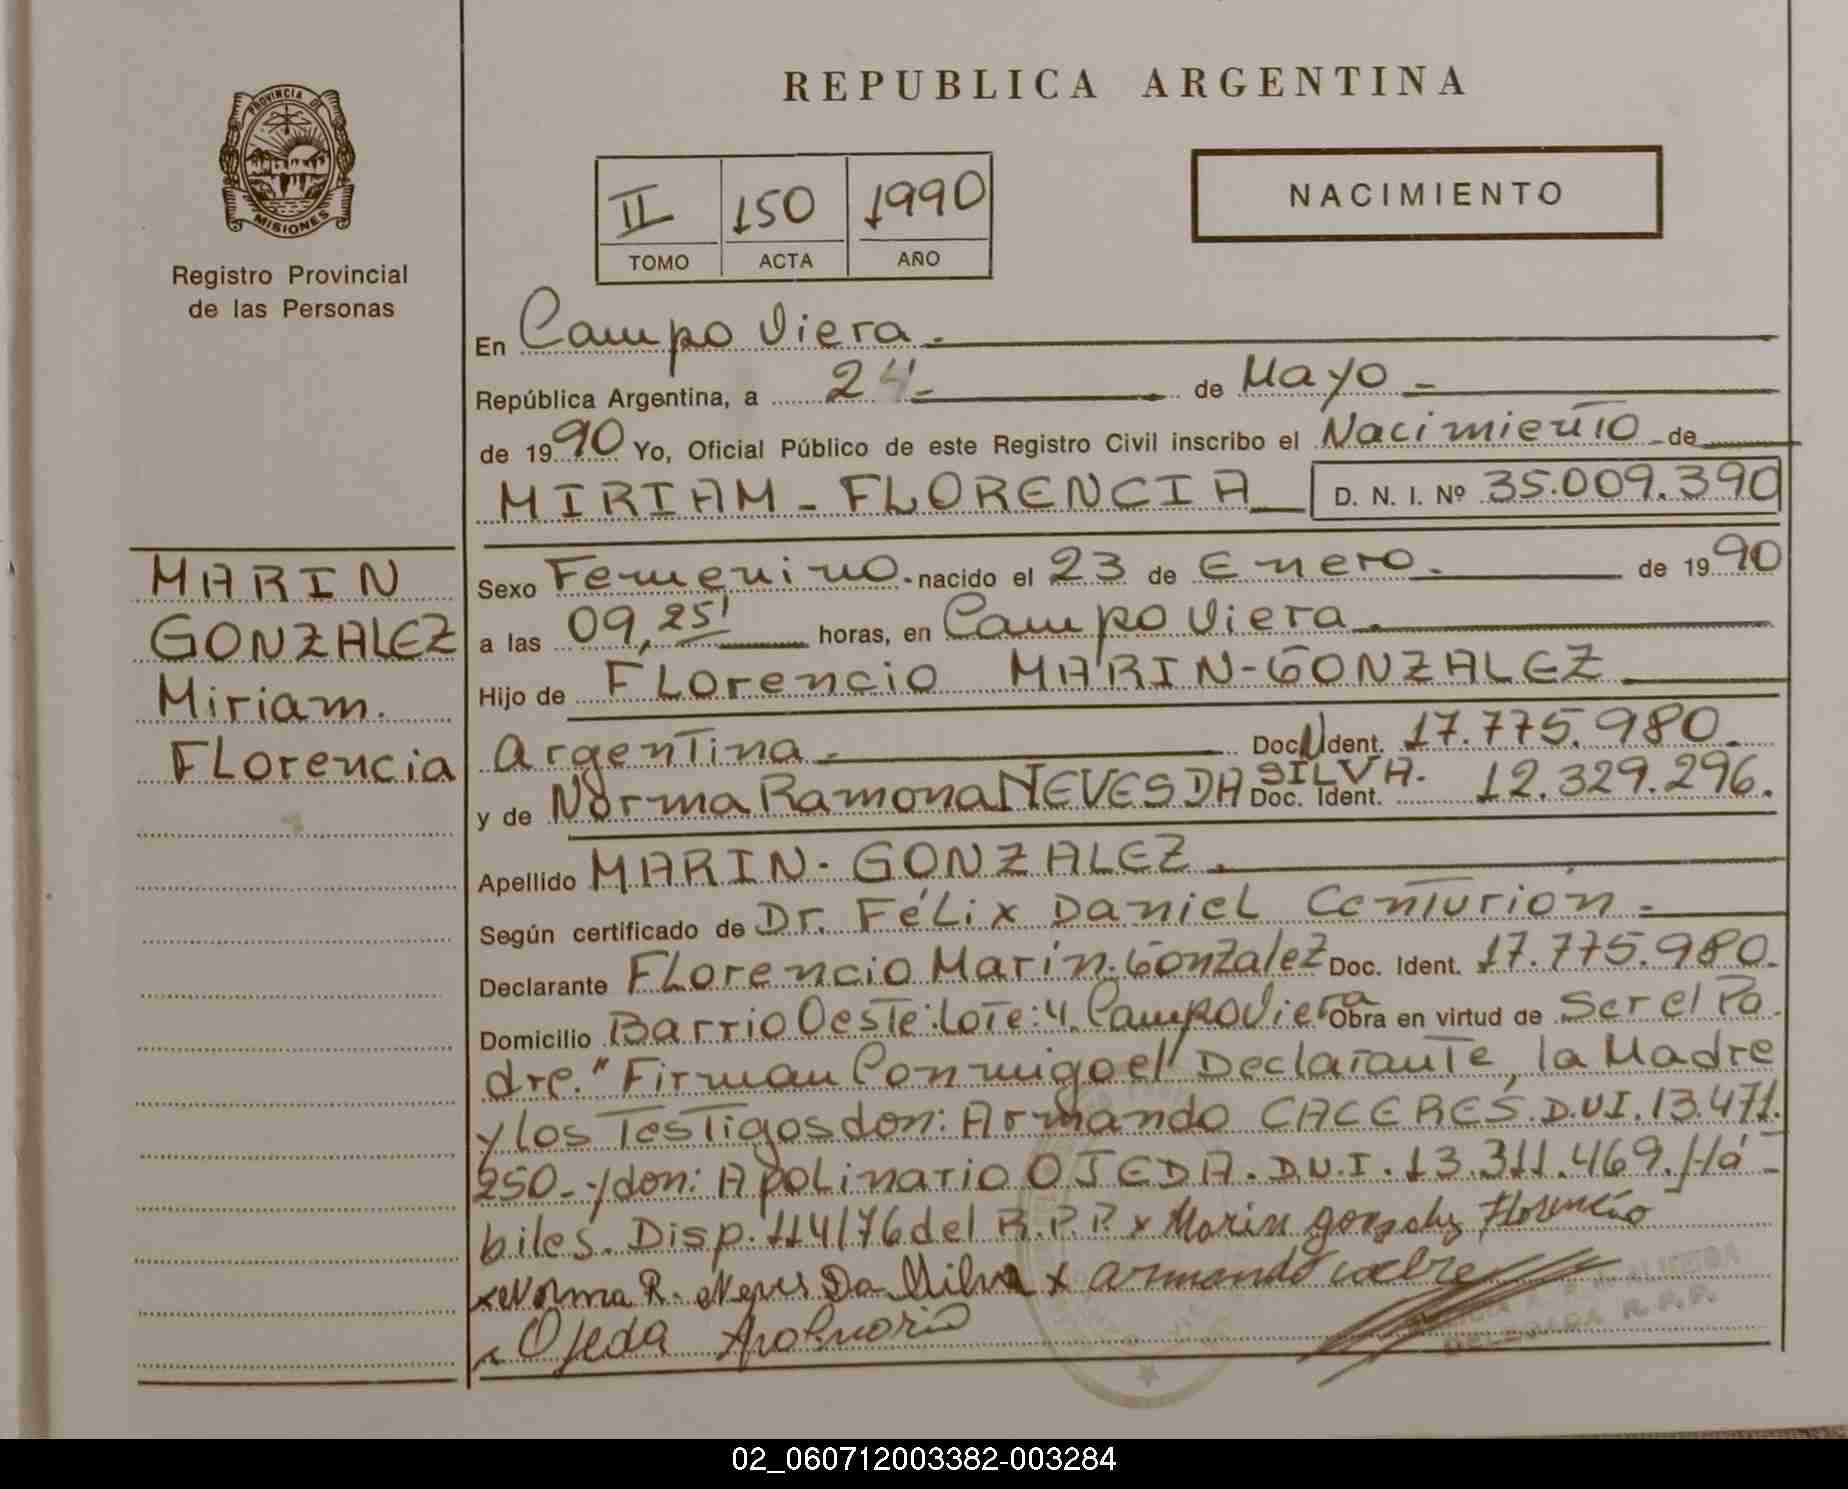 PROVINCIA DE
MISIONES
Registro Provincial
de las Personas
MARIN
GONZALEZ
Miriam.
FLorencia
REPUBLICA ARGENTINA
II 150 1990
TOMO ACTA AÑO
NACIMIENTO
En Campo Viera.
República Argentina, a 24 de Mayo
de 1990 Yo, Oficial Público de este Registro Civil inscribo el Nacimiento de
MIRIAM - FLORENCIA D. N. I. Nº 35.009.390
Sexo Femenino. nacido el 23 de Enero. de 1990
a las 09,25' horas, en Campo Viera.
Hijo de FLorencio MARIN-GONZALEZ
Argentina. Doc. Ident. 17.775.980.
y de Norma Ramona NEVES DA SILVA. Doc. Ident. 12.329.296.
Apellido MARIN-GONZALEZ.
Según certificado de Dr. FéLix DanieL Centurión
Declarante FLorencio Marín-Gonzalez Doc. Ident. 17.775.980.
Domicilio Barrio Oeste: Lote: 4. Campo Viera Obra en virtud de Ser el Pa-
dre." Firman Conmigo el Declarante, la Madre
y los Testigos don: Armando CACERES. D.N.I. 13.471.
250 - y don: ApoLinario OJEDA. D.N.I. 13.311.469. Há-
biles. Disp. 114/76 del R.P.P. x Marin Gonzalez Florencio
x Norma R. Neves Da Silva x Armando
x Ojeda Apolinario
DELEGADA R.P.P.
02_060712003382-003284